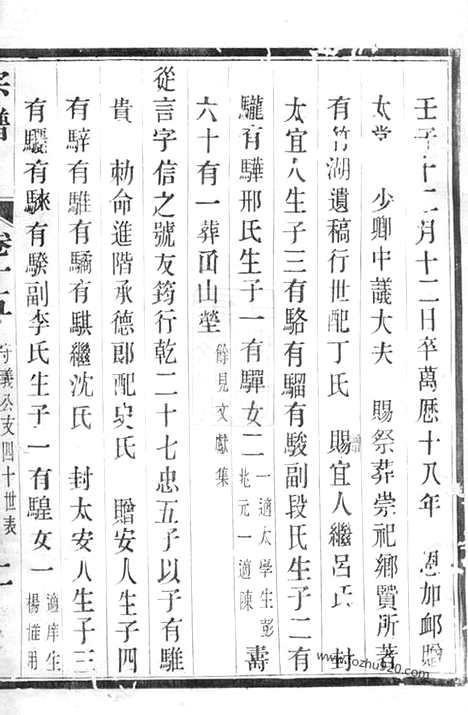 壬子十二月十二日卒萬厯十八年 恩加䘏贈
太常 少卿中議大夫 賜祭葬崇祀鄉賢所著
有竹湖遺稿行世配丁氏 贈 賜宜人繼呂氏 封
太宜人生子三有駱有騮有駿副段氏生子二有
驪有驊邢氏生子一有驒女二 一適太學生彭 兆元一適陳 壽
六十有一葬靣山塋 餘見文獻集
從言字信之號友筠行乾二十七忠五子以子有騅
貴 勅命進階承德郎配吳氏 贈安人生子四
有騂有騅有驕有騏繼沈氏 封太安人生子三
有驟有騋有騤副李氏生子一有騜女一 適庠生 楊惟用
宗譜 卷十五 守義公支四十世表
www.jozhu920.com